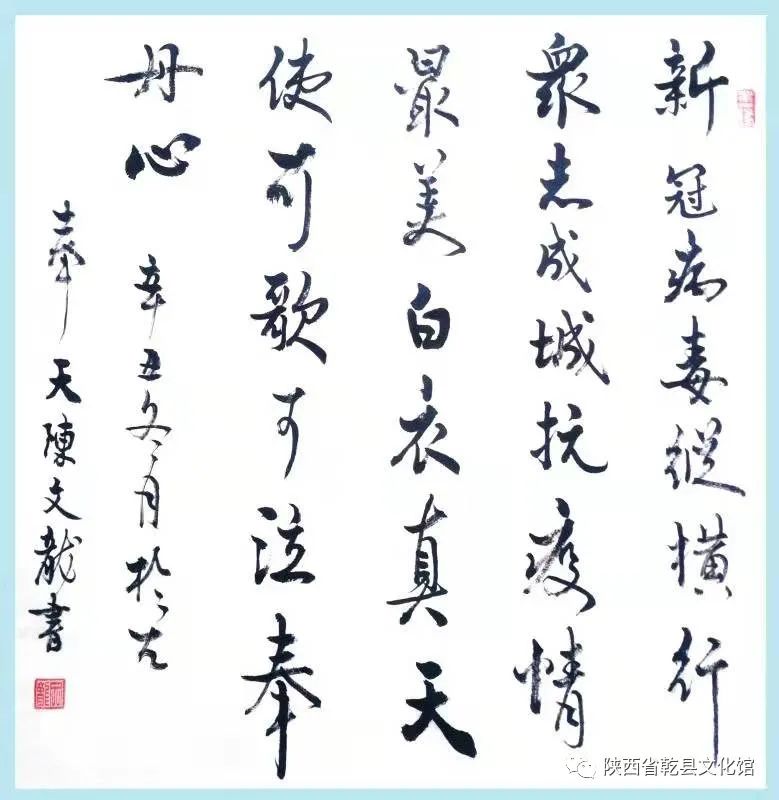 新冠病毒縱横行
眾志成城抗疫情
最美白衣真天
使可歌可泣奉
丹心
辛丑冬月於古
奉天陳文龍書
陕西省乾县文化馆